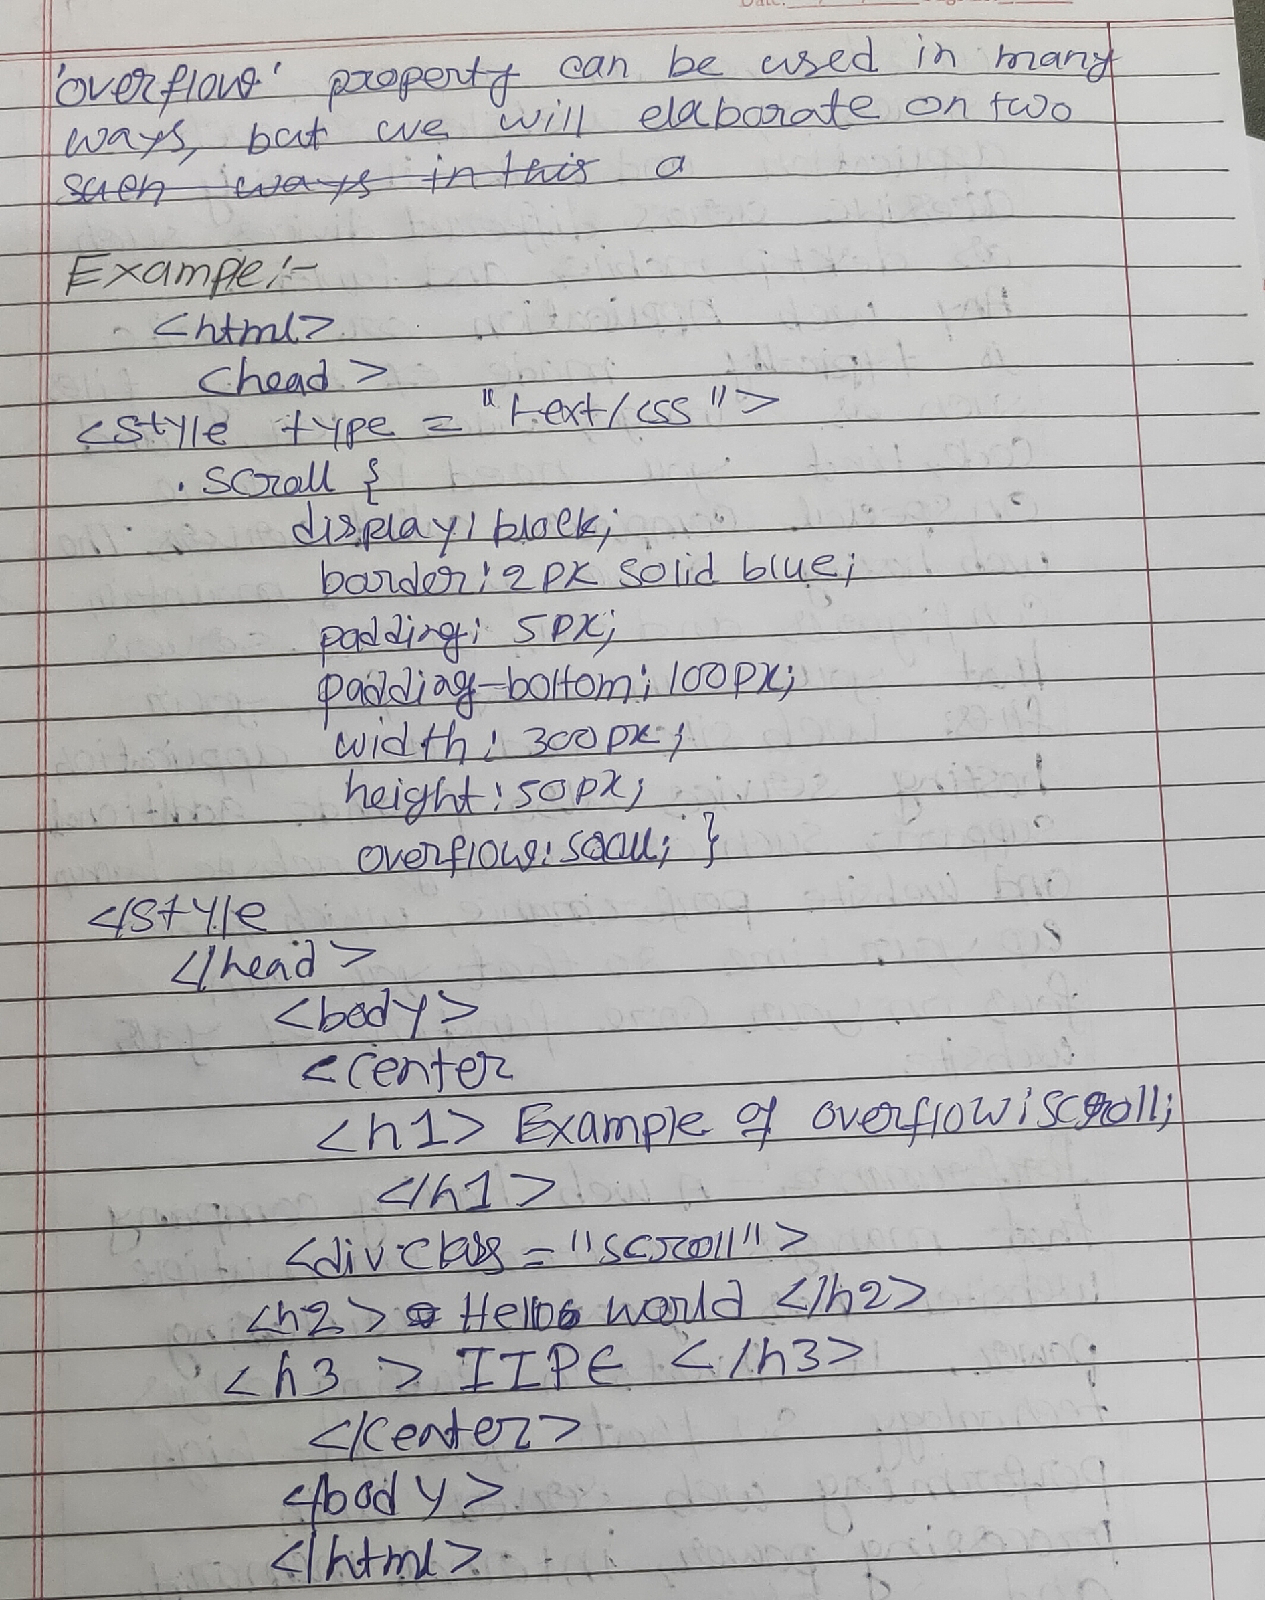 'overflow' property can be used in many
ways, but we will elaborate on two
such ways in this a
Example:-
<html>
<head>
<style type = "text/css">
.scroll {
display: block;
border: 2px solid blue;
padding: 5px;
padding-bottom: 100px;
width: 300px;
height: 50px;
overflow: scroll; }
</style
</head>
<body>
<center
<h1> Example of overflow: scroll;
</h1>
<div class = "scroll">
<h2> Hello world </h2>
<h3> IIPE </h3>
</center>
</body>
</html>